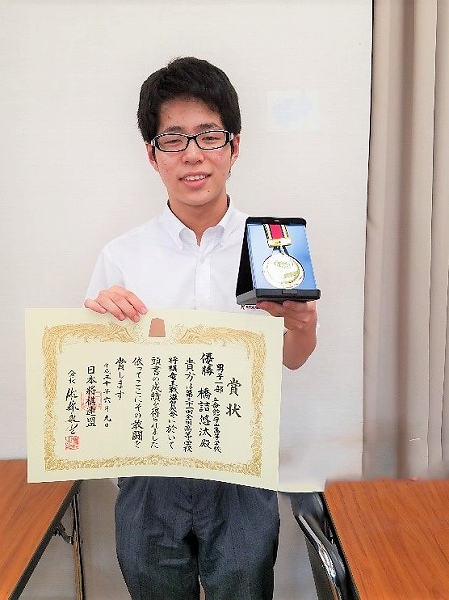 賞状
男子一部 高等学校
優勝 橋詰悠汰殿
貴方は第三十一回全国高等学校
将棋竜王戦滋賀 に於いて
頭書の成績を得られました
依ってここにその 闘を
賞します
平成三十年六月九日
日本将棋連盟
会長 佐藤康光